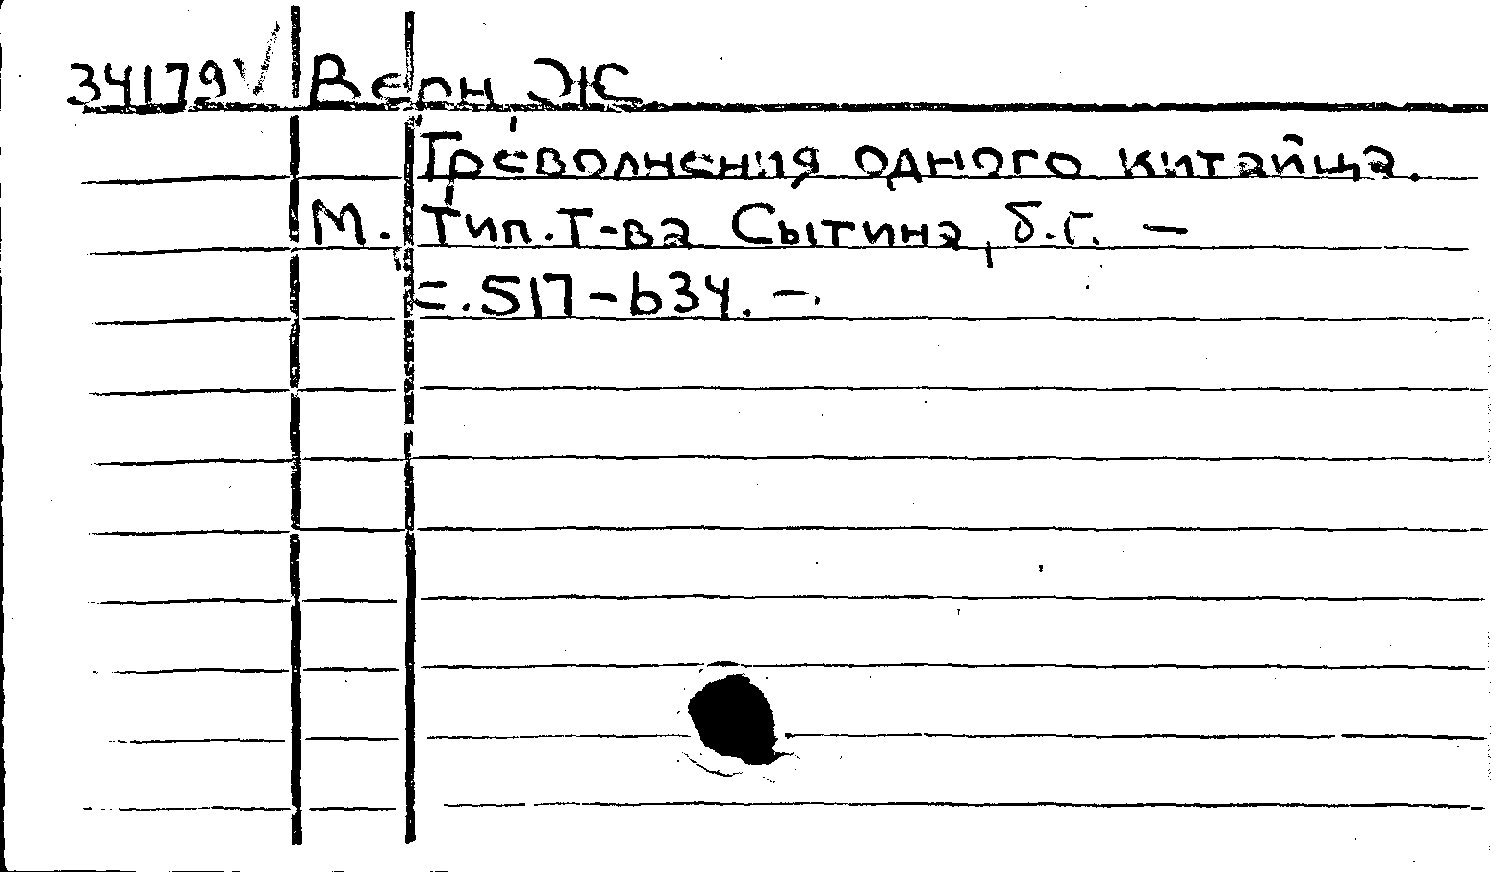 34179 Верн, Ж
Треволнения одного китайца.
М. Тип. Т-ва Сытина, б.г. —
с. 517-634. —